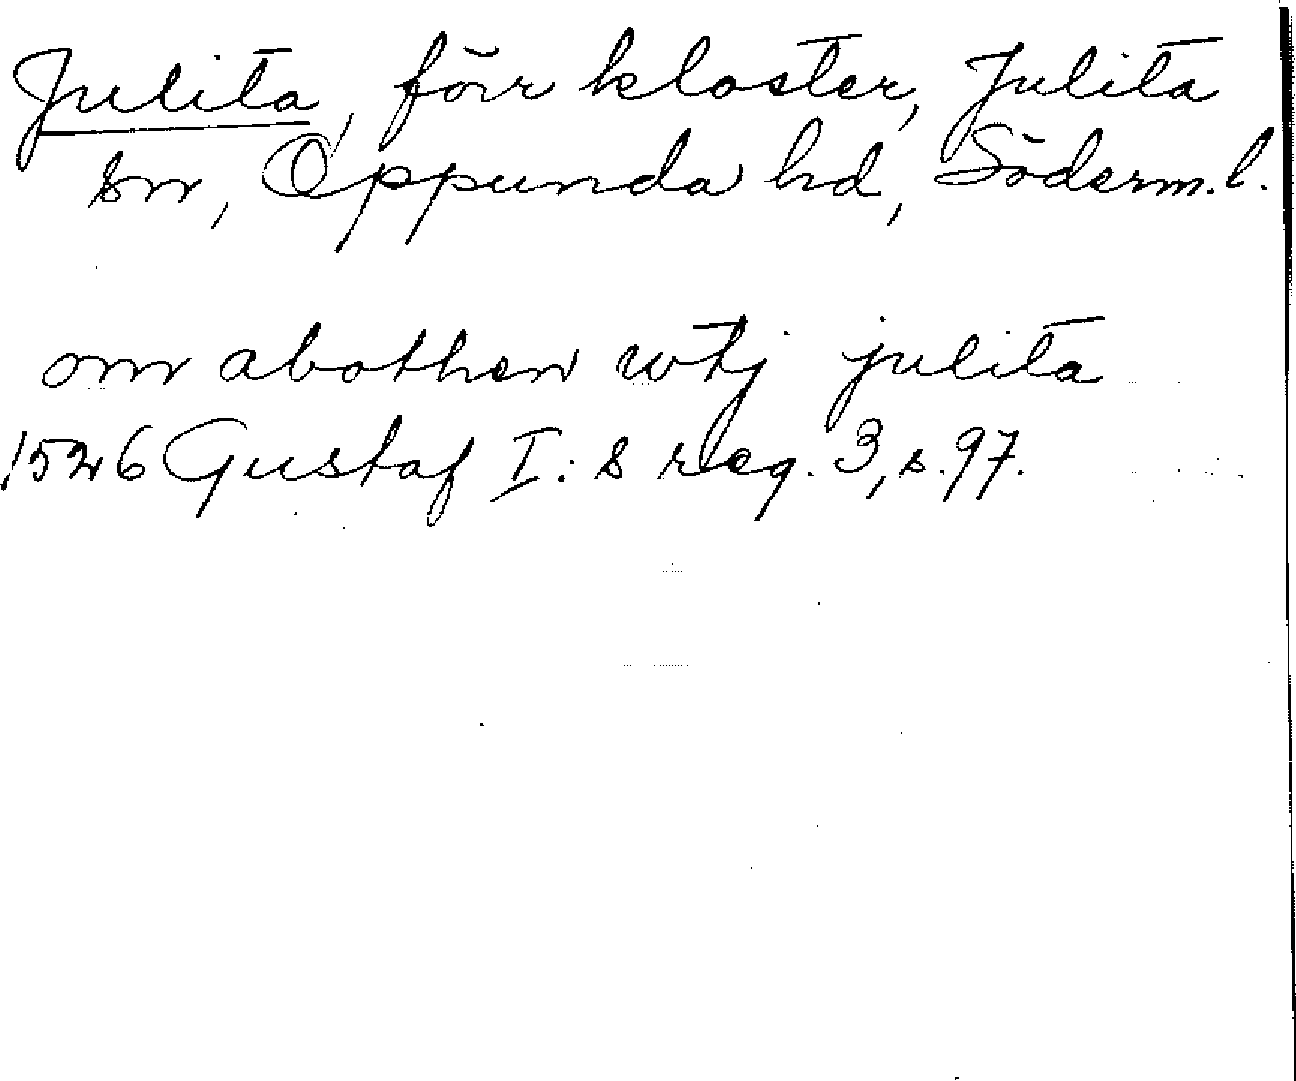 Julita, förr kloster, Julita
sn, Oppunda hd, Söderm. l.
om abothen wtj julita
1526 Gustaf I:s reg. 3, s. 97.